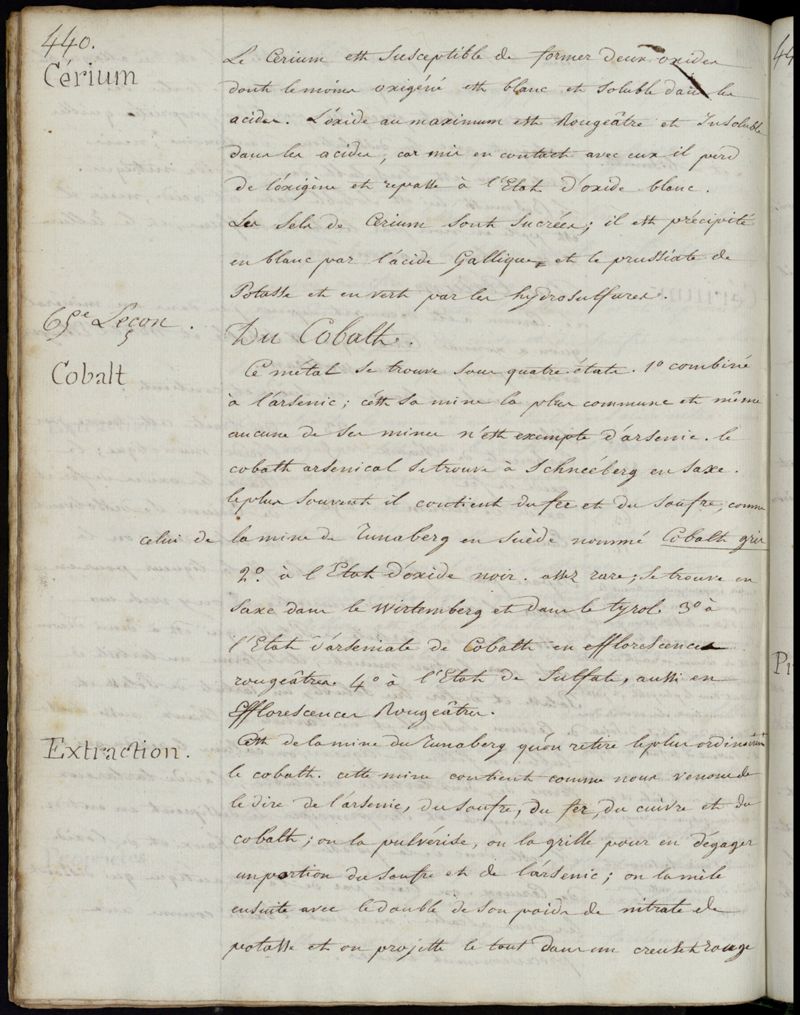 440.
Cérium
Le Cérium est susceptible de former deux oxides
dont le moins oxigéné est blanc et soluble dans les
acides. L'oxide au maximum est Rougeâtre et Insoluble
dans les acides, car mis en contact avec eux il perd
de l'oxigène et repasse à l'Etat d'oxide blanc.
Les sels de Cérium sont sucrées; il est précipité
en blanc par l'acide Gallique, et le prussiate de
Potasse et en vert par les hydrosulfures.
65e Leçon.
Du Cobalt.
Cobalt
Ce métal se trouve sous quatre états. 1º combiné
à l'arsenic; c'est sa mine la plus commune et même
aucune de ses mines n'est exempte d'arsenic. le
cobalt arsenical se trouve à Schnéeberg en Saxe.
le plus souvent il contient du fer et du soufre, comme
celui de la mine de Tunaberg en Suède nommé Cobalt gris
2º. à l'Etat d'oxide noir. assez rare; se trouve en
Saxe dans le Wirtemberg et dans le tyrol. 3º à
l'Etat d'arseniate de Cobalt en efflorescences
rougeâtres. 4º à l'Etat de Sulfate, aussi en
Efflorescences Rougeâtres.
Extraction.
C'est de la mine du Tunaberg qu'on retire le plus ordinairement
le cobalt. cette mine contient comme nous venons de
le dire de l'arsenic, du soufre, du fer, du cuivre et du
cobalt; on la pulvérise, on la grille pour en dégager
un portion du soufre et de l'arsenic; on la mêle
ensuite avec le double de son poids de nitrate de
potasse et on projette le tout dans un creuset rouge
44
Pr